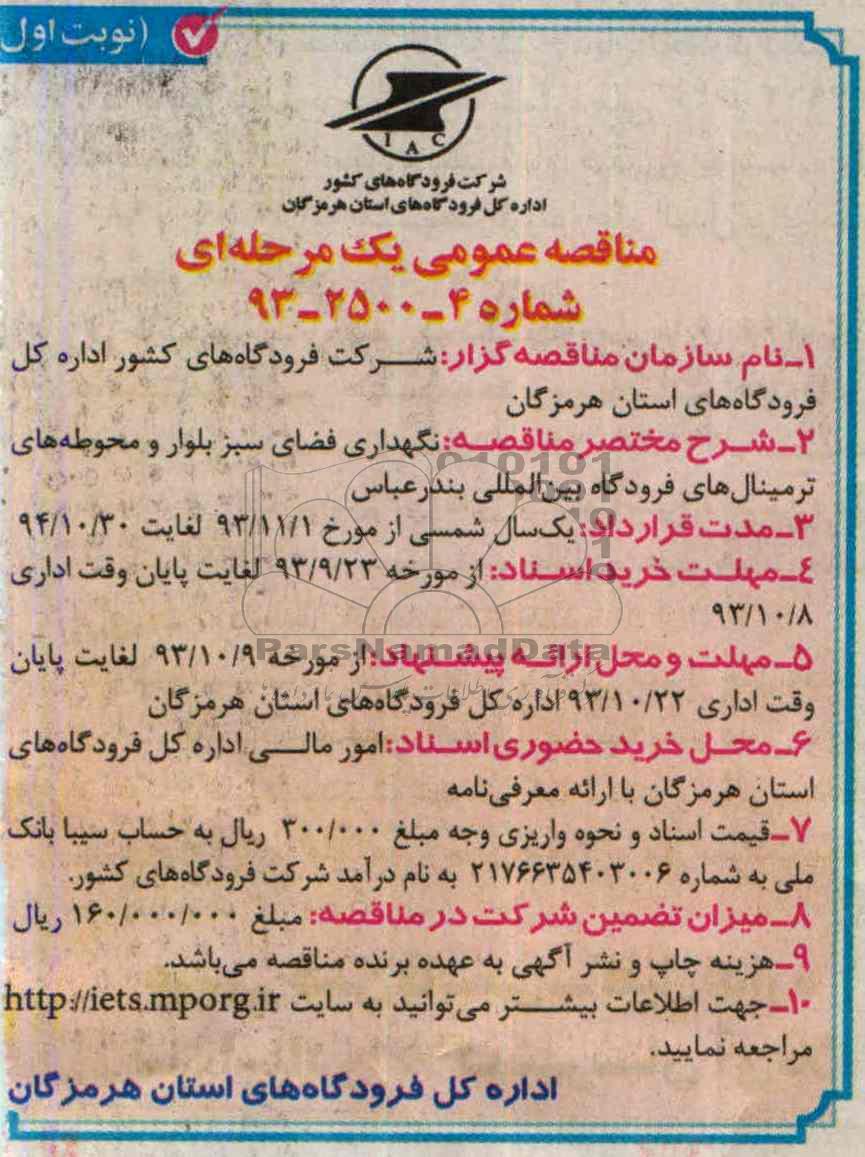 (نوبت اول
IAC
شرکت فرودگاه‌های کشور
اداره کل فرودگاه‌های استان هرمزگان
مناقصه عمومی یک مرحله‌ای
شماره ۴ـ۲۵۰۰ـ۹۳
۱ـنام سازمان مناقصه‌گزار: شرکت فرودگاه‌های کشور اداره کل
فرودگاه‌های استان هرمزگان
۲ـشرح مختصر مناقصه: نگهداری فضای سبز بلوار و محوطه‌های
ترمینال‌های فرودگاه بین‌المللی بندرعباس
۳ـمدت قرارداد: یک‌سال شمسی از مورخ ۹۳/۱۱/۱ لغایت ۹۴/۱۰/۳۰
۴ـمهلت خرید اسناد: از مورخه ۹۳/۹/۲۳ لغایت پایان وقت اداری
۹۳/۱۰/۸
۵ـمهلت و محل ارائه پیشنهاد: از مورخه ۹۳/۱۰/۹ لغایت پایان
وقت اداری ۹۳/۱۰/۲۲ اداره کل فرودگاه‌های استان هرمزگان
۶ـمحل خرید حضوری اسناد: امور مالی اداره کل فرودگاه‌های
استان هرمزگان با ارائه معرفی‌نامه
۷ـقیمت اسناد و نحوه واریزی وجه مبلغ ۳۰۰/۰۰۰ ریال به حساب سیبا بانک
ملی به شماره ۲۱۷۶۶۳۵۴۰۳۰۰۶ به نام درآمد شرکت فرودگاه‌های کشور.
۸ـمیزان تضمین شرکت در مناقصه: مبلغ ۱۶۰/۰۰۰/۰۰۰ ریال
۹ـهزینه چاپ و نشر آگهی به عهده برنده مناقصه می‌باشد.
۱۰ـجهت اطلاعات بیشتر می‌توانید به سایت http://iets.mporg.ir
مراجعه نمایید.
اداره کل فرودگاه‌های استان هرمزگان
ParsNamadData